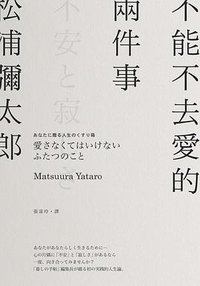 不能不去愛的
兩件事
不安と寂しさ
松浦彌太郎
あなたに贈る人生のくすり箱
愛さなくてはいけない
ふたつのこと
Matsuura Yataro
張富玲・譯
あなたがあなたらしく生きるために―
心の片隅に「不安」と「寂しさ」があるなら
一度、向き合ってみませんか?
『暮しの手帖』編集長が贈る初の実践的人生論。